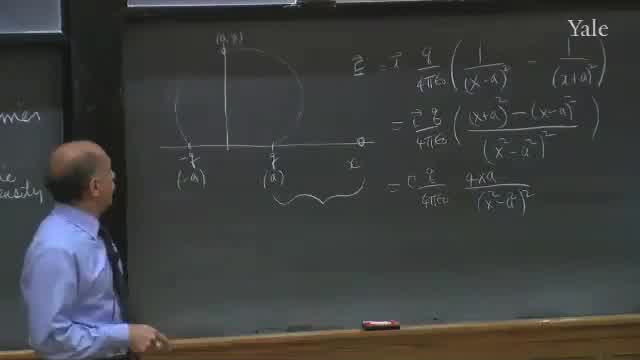 Yale
(0, y)
-q q x
(-a) (a)
E⃗ = i⃗ q/4πε₀ ( 1/(x-a)² - 1/(x+a)² )
= i⃗ q/4πε₀ ( (x+a)² - (x-a)² / (x² - a²)² )
= i⃗ q/4πε₀ 4xa/(x² - a²)²